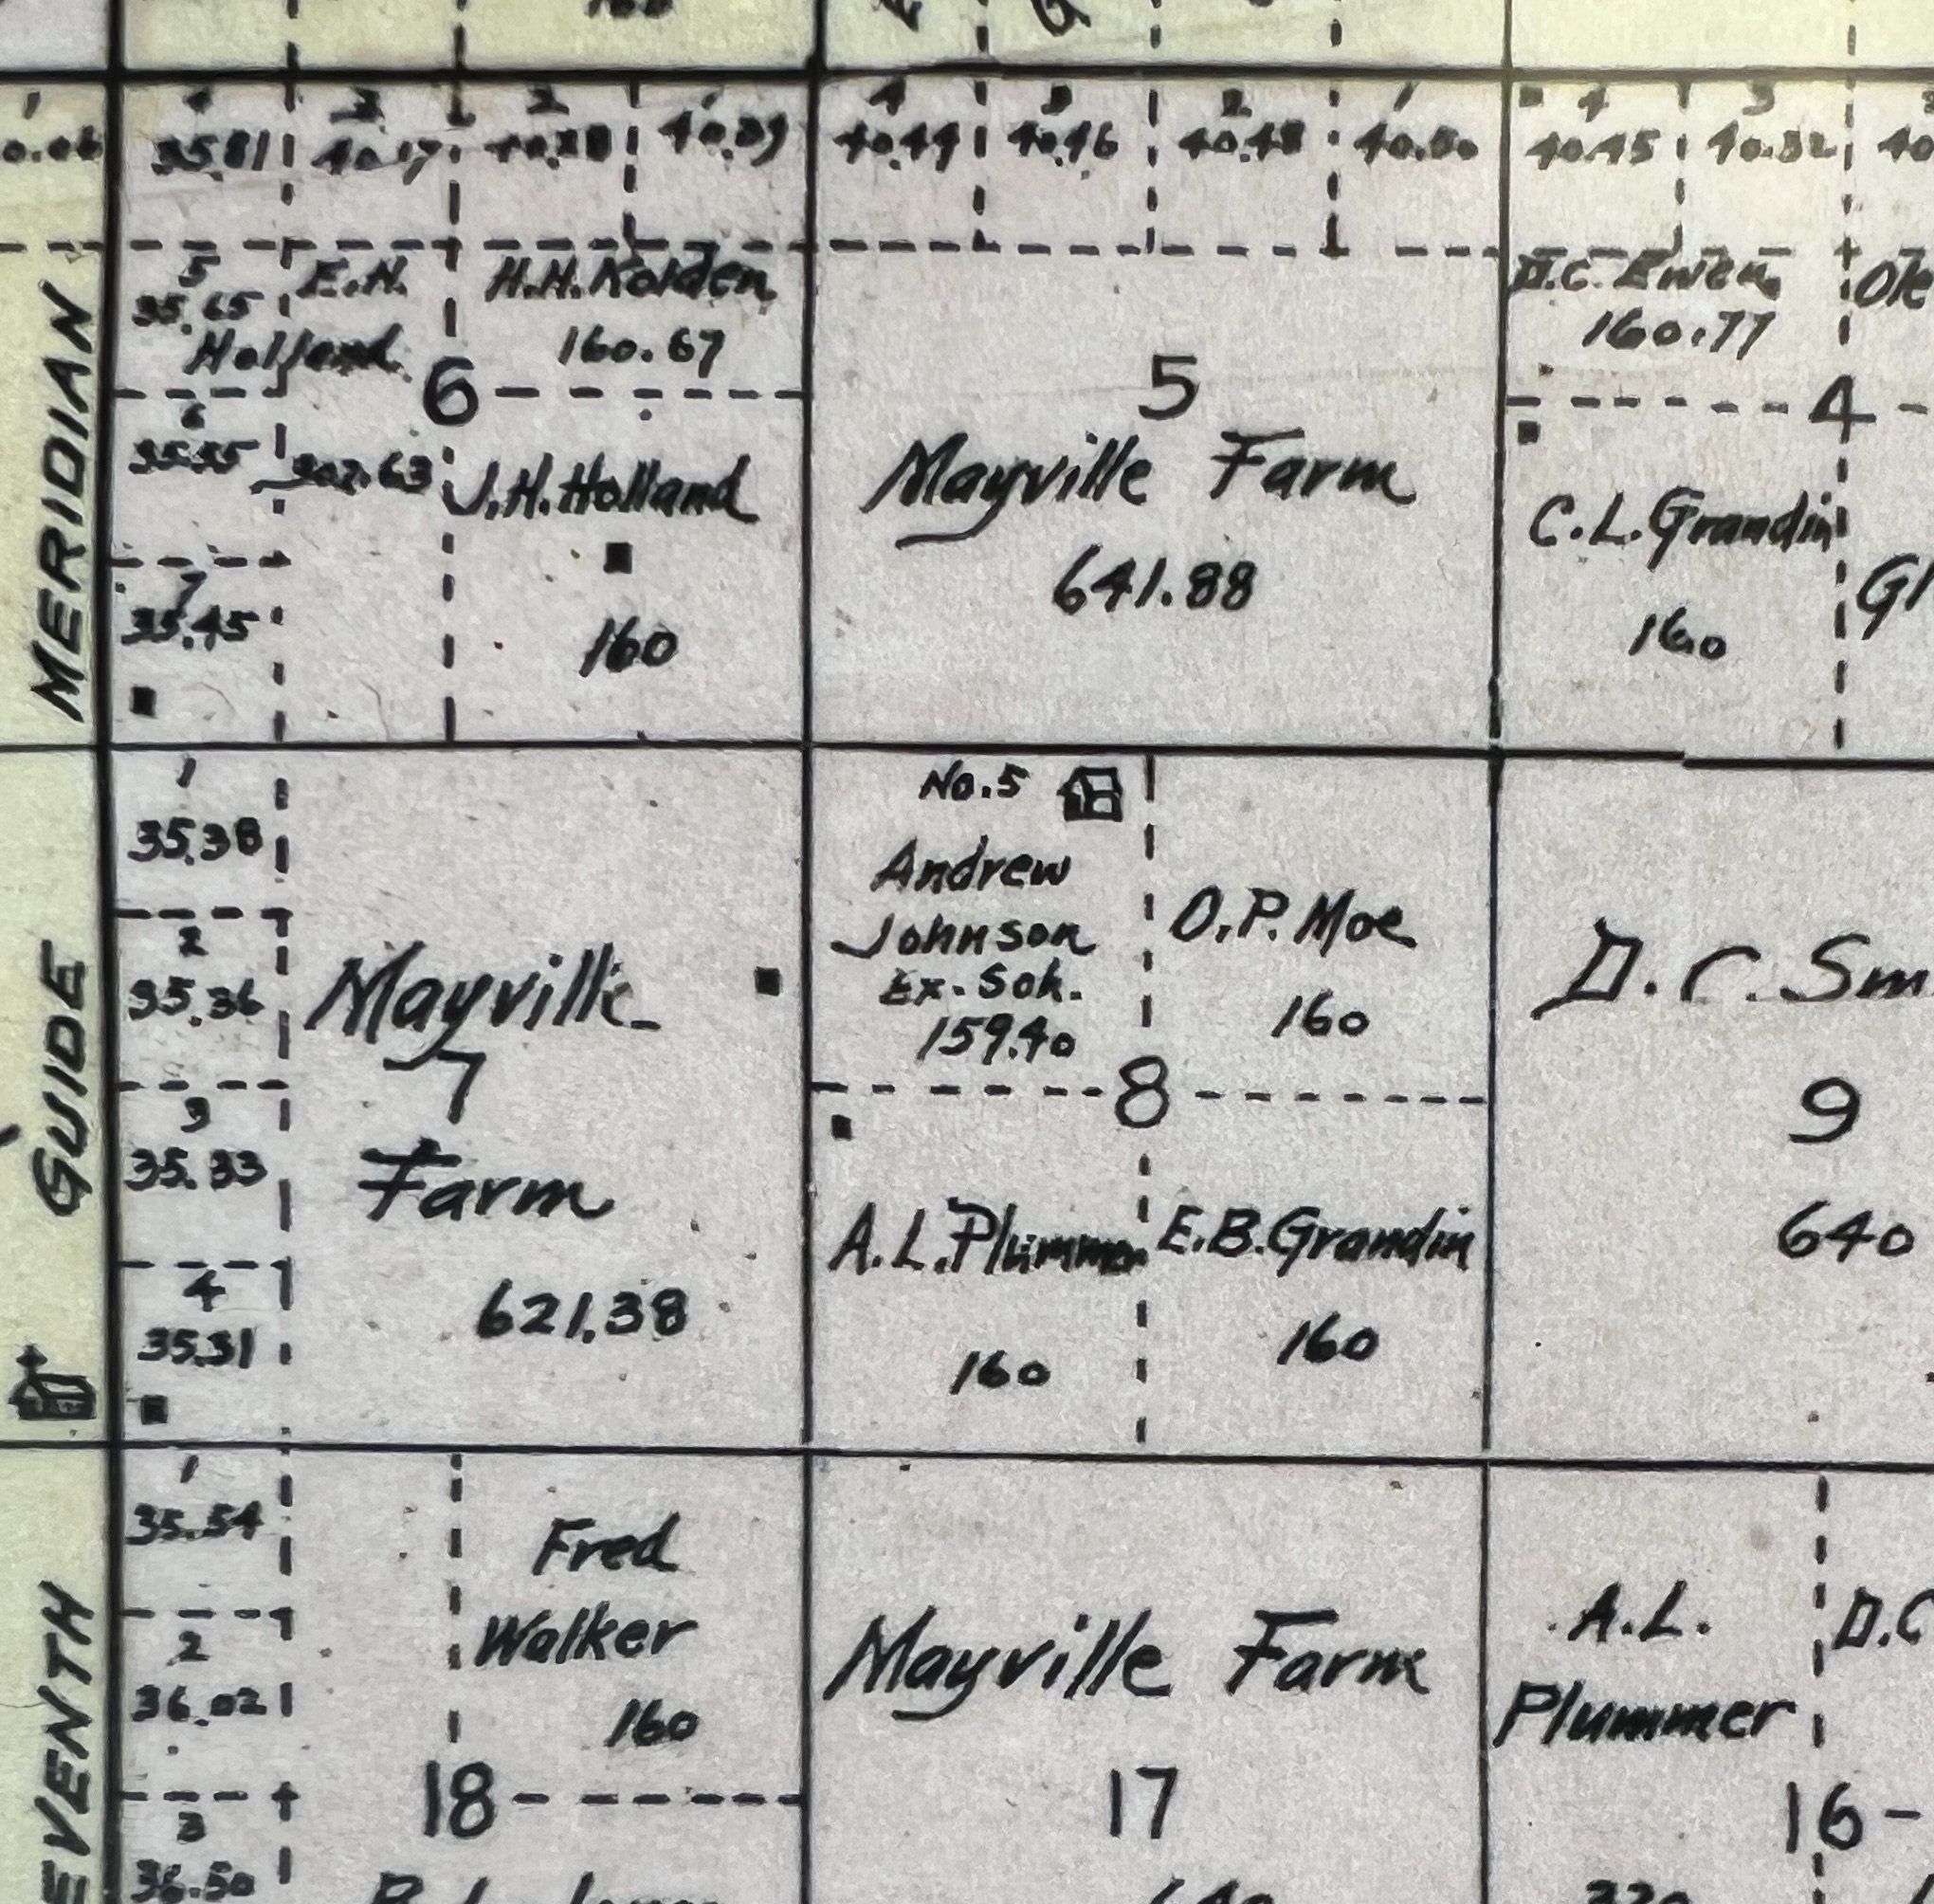 160
4 3 2 1 4 3 2 1 4 3
35.81 40.17 40.39 40.44 40.46 40.48 40.80 40.45 40.32
5 E.H. H.H. Kolden
35.65 160.67
Holland
D.C. Ewen Ole
160.77
6 5 4
6
35.55 302.63 J.H. Holland
Mayville Farm
641.88
C.L. Grandin
160
7
35.45 160
MERIDIAN
1
35.38
2
35.36
3
35.33
4
35.31
Mayville
7
Farm
621.38
No. 5
Andrew
Johnson
Ex. Sch.
159.40
O.P. Moe
160
8
A.L. Plummer
160
E.B. Grandin
160
D.C. Sm
9
640
GUIDE
1
35.54
2
36.02
3
36.50
Fred
Walker
160
18
Mayville Farm
17
640
A.L.
Plummer
D.C
16
320
EVENTH